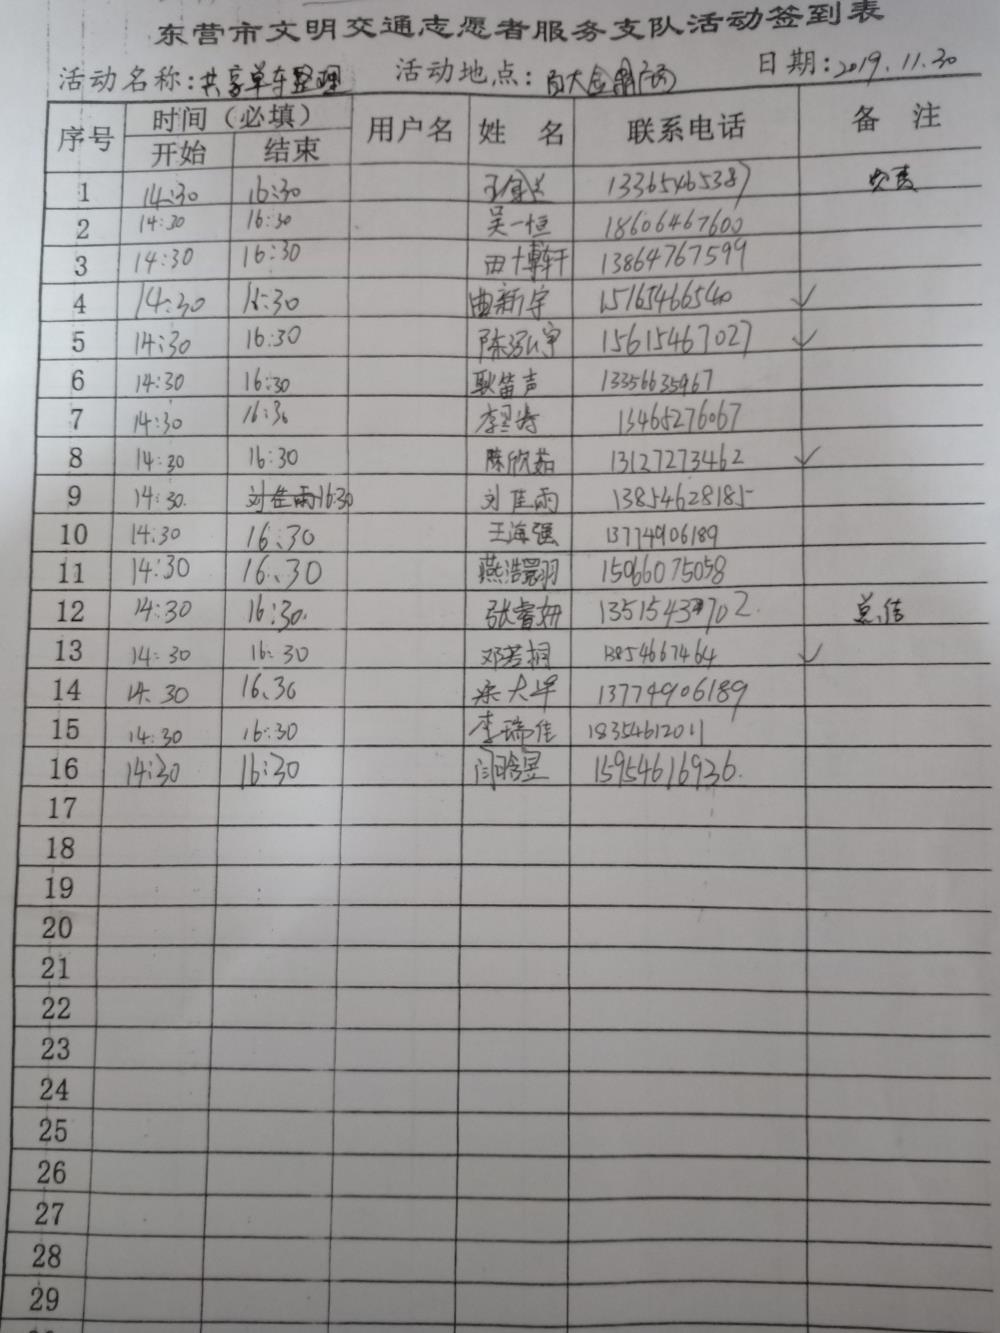 东营市文明交通志愿者服务支队活动签到表
活动名称:共享单车整理 活动地点: 日期:2019.11.30
序号 时间（必填） 用户名 姓 名 联系电话 备 注
开始 结束
1 14:30 16:30 13365465387
2 14:30 16:30 吴一恒 18606467600
3 14:30 16:30 田博轩 13864767599
4 14:30 16:30 曲新宇 15165466540 ✓
5 14:30 16:30 陈泓宇 15615467027 ✓
6 14:30 16:30 耿笛声 13356635967
7 14:30 16:30 13465276067
8 14:30 16:30 陈欣茹 13127273462 ✓
9 14:30. 刘佳雨16:30 刘佳雨 13854628185
10 14:30 16:30 王海强 13774906189
11 14:30 16:30 燕浩 15066075058
12 14:30 16:30. 张睿妍 总结
13 14:30 16:30 邓芳桐 13854667464 ✓
14 14.30 16.30 13774906189
15 14:30 16:30 李瑞佳 18354612011
16 14:30 16:30 闫晗昱 15954616936.
17
18
19
20
21
22
23
24
25
26
27
28
29